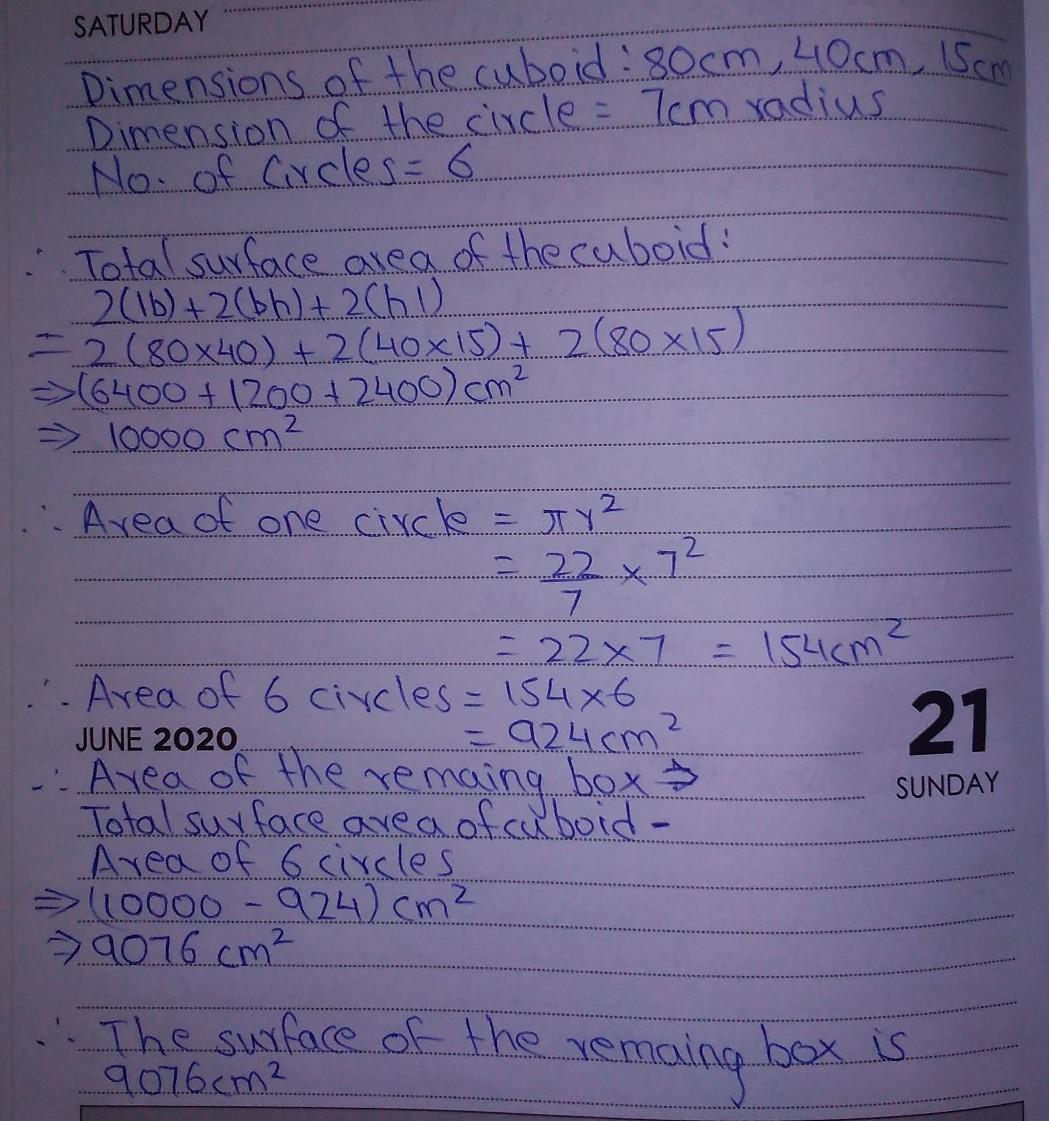 SATURDAY
Dimensions of the cuboid : 80cm, 40cm, 15cm
Dimension of the circle = 7cm radius
No. of Circles = 6
∴ Total surface area of the cuboid :
2(lb) + 2(bh) + 2(hl)
= 2(80×40) + 2(40×15) + 2(80×15)
⇒ (6400 + 1200 + 2400) cm²
⇒ 10000 cm²
∴ Area of one circle = πr²
= 22/7 × 7²
= 22×7 = 154cm²
∴ Area of 6 circles = 154×6
JUNE 2020 = 924cm²
21
SUNDAY
∴ Area of the remaing box ⇒
Total surface area of cuboid -
Area of 6 circles
⇒ (10000 - 924) cm²
⇒ 9076 cm²
∴ The surface of the remaing box is
9076cm²